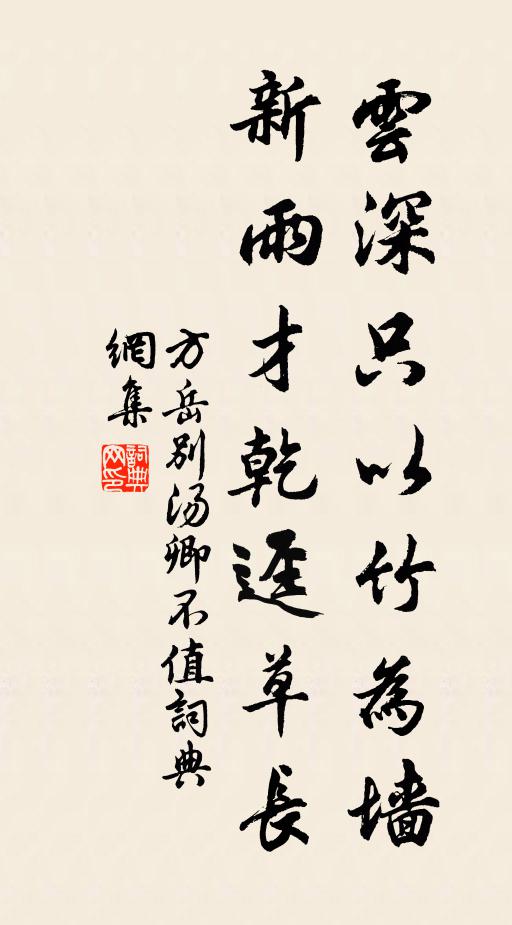 雲深只以竹為墻
新雨才乾逕草長
方岳別汤卿不值詞典
網集
詞典網印